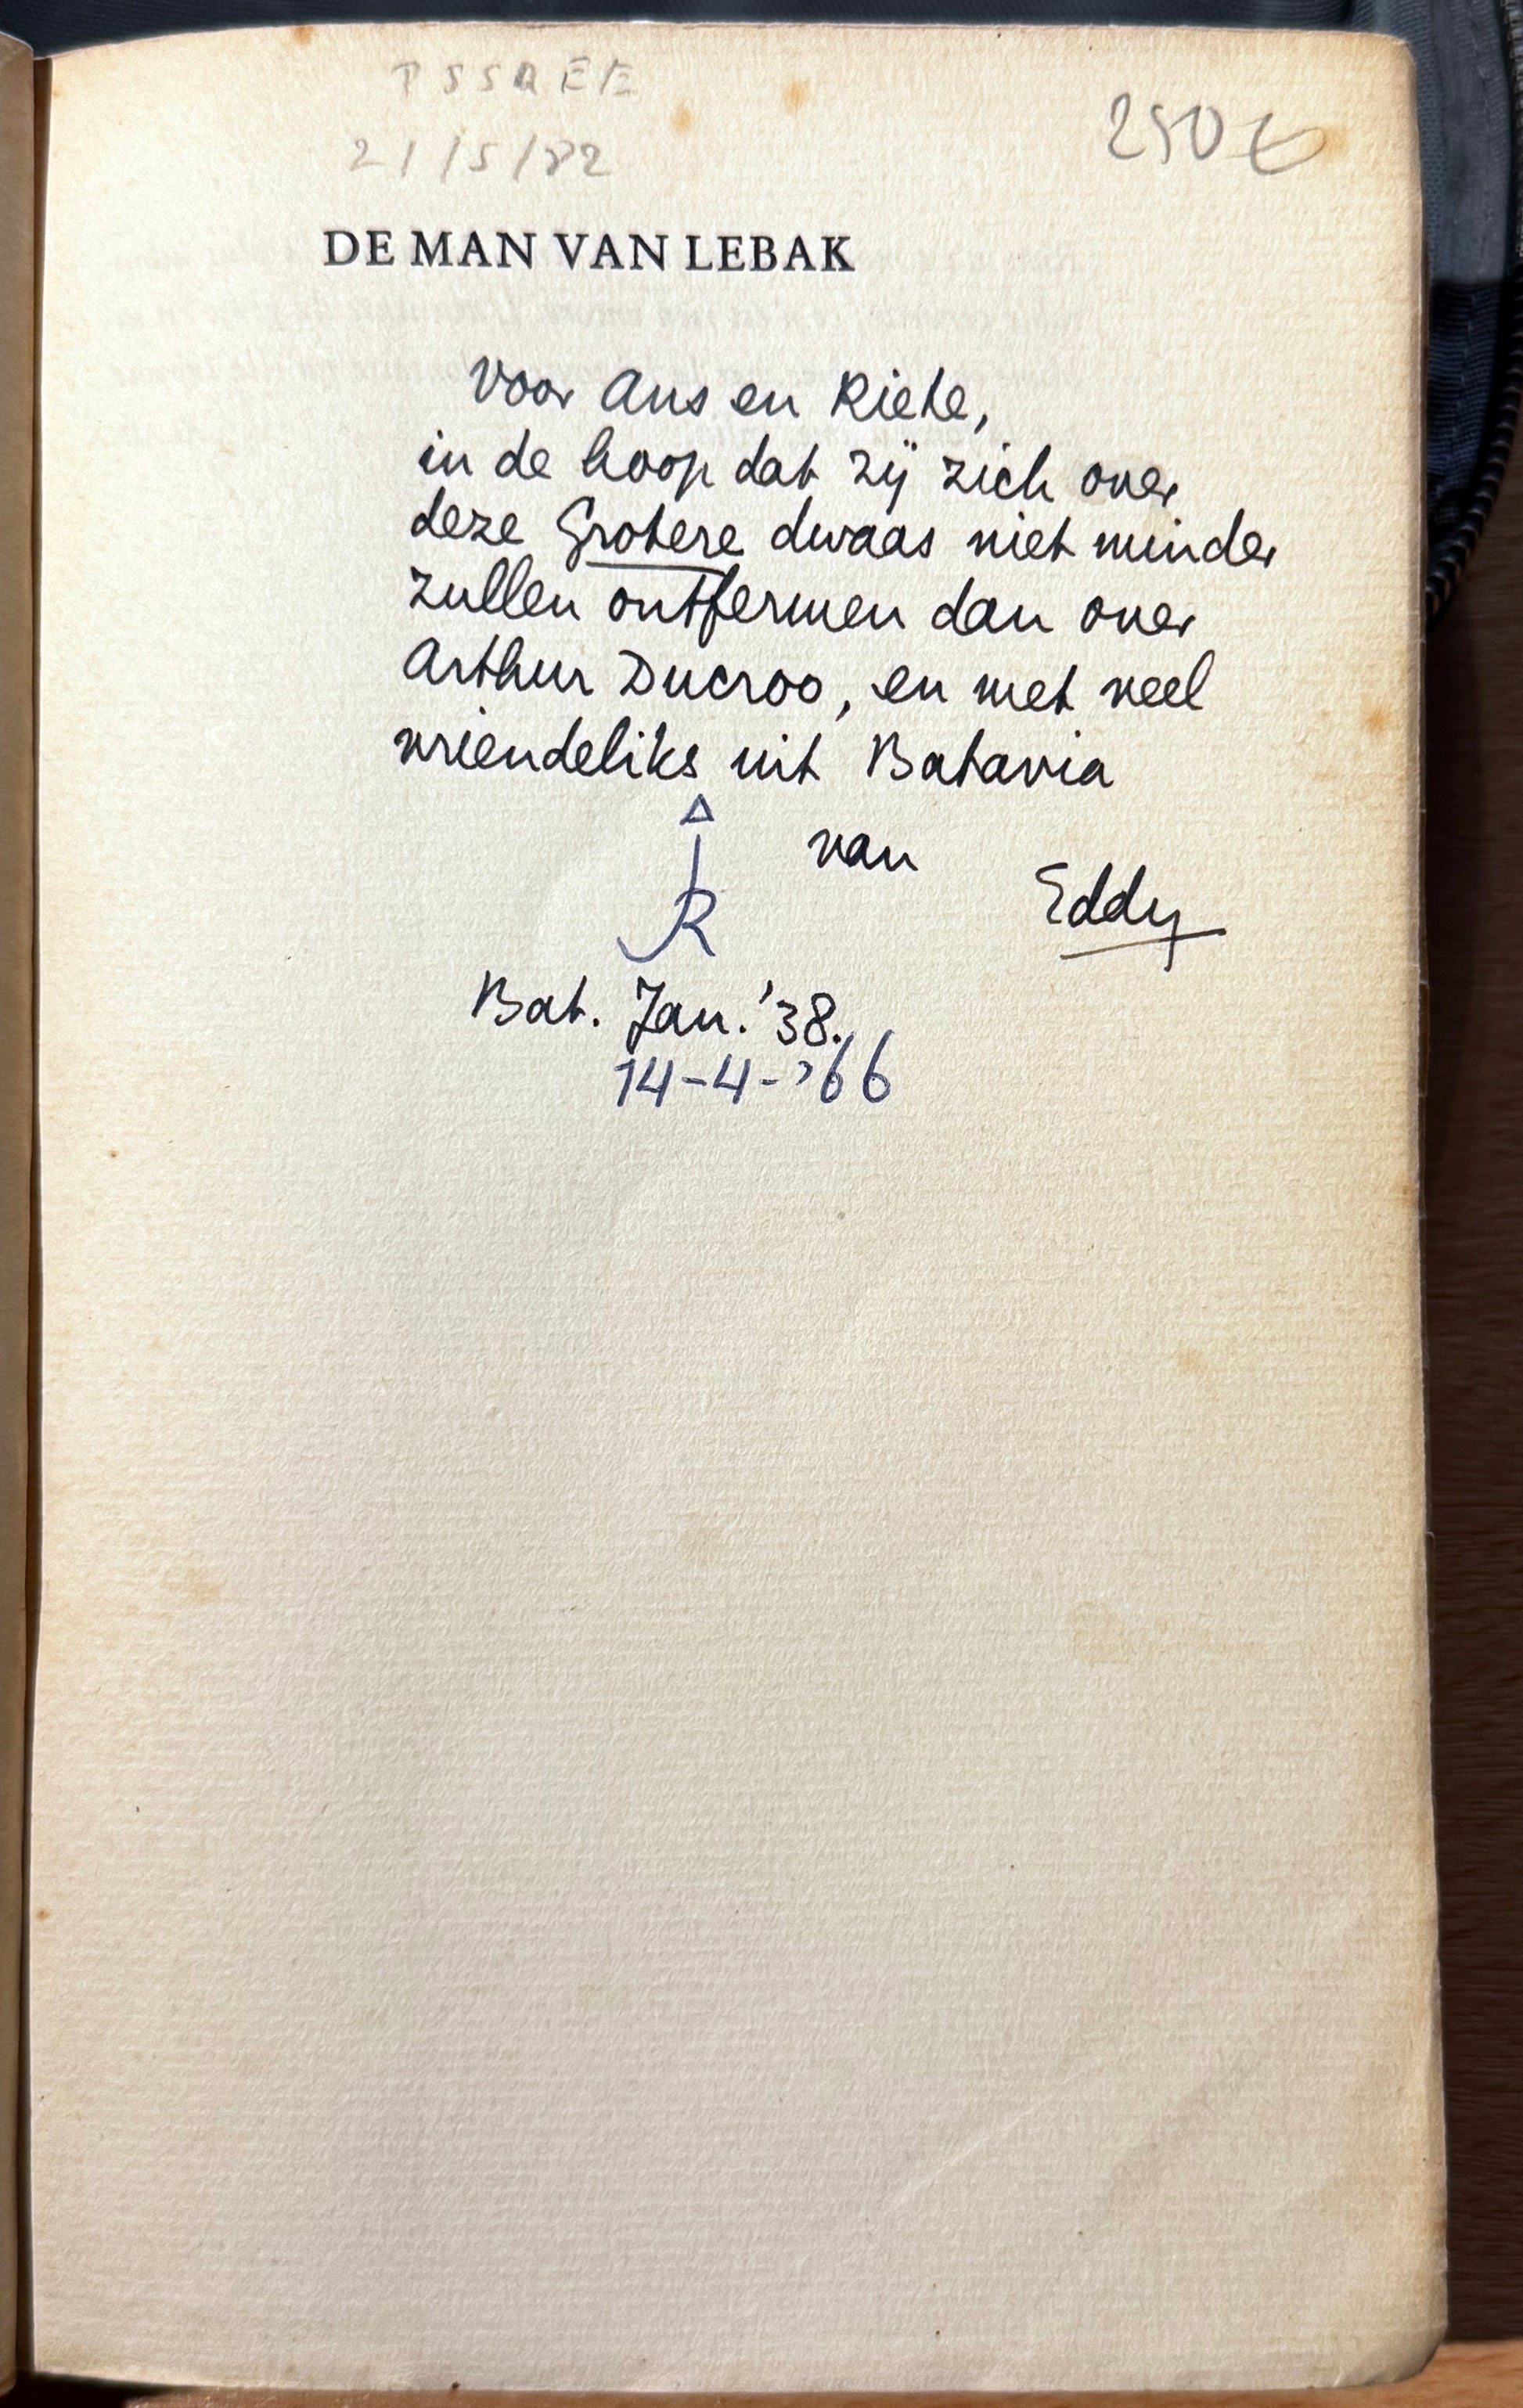 21/5/82
250 €
DE MAN VAN LEBAK
Voor Ans en Riete,
in de hoop dat zij zich over
deze Grotere dwaas niet minder
zullen ontfermen dan over
Arthur Ducroo, en met veel
vriendeliks uit Batavia
van
Eddy
R
Bat. Jan. '38.
14-4-'66